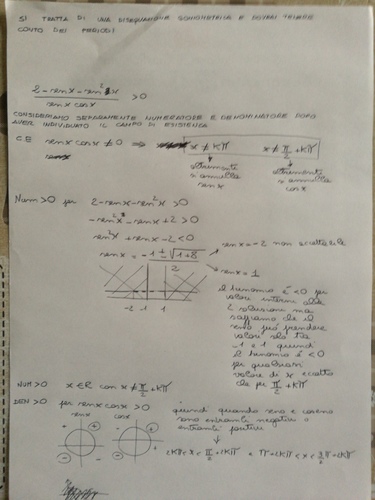 SI TRATTA DI UNA DISEQUAZIONE GONIOMETRICA E DOVRAI TENERE
CONTO DEI PERIODI
2 - sen x - sen²x / sen x cos x > 0
CONSIDERIAMO SEPARATAMENTE NUMERATORE E DENOMINATORE DOPO
AVER INDIVIDUATO IL CAMPO DI ESISTENZA
C.E. sen x cos x ≠ 0 ⇒ x ≠ kπ x ≠ π/2 + kπ
altrimenti si annulla sen x
altrimenti si annulla cos x
Num > 0 per 2 - sen x - sen²x > 0
- sen²x - sen x + 2 > 0
sen²x + sen x - 2 < 0
sen x = -1 ± √1+8 / 2
sen x = -2 non accettabile
sen x = 1
-2 -1 1
il binomio è < 0 per
valori interni alle
2 soluzioni ma
sappiamo che il
seno può prendere
valori solo tra
-1 e 1 quindi
il binomio è < 0
per qualsiasi
valore di x eccetto
che per π/2 + kπ
NUM > 0 x ∈ R con x ≠ π/2 + kπ
DEN > 0 per sen x cos x > 0
sen x cos x
+ + - -
- + - +
quindi quando seno e coseno
sono entrambi negativi o
entrambi positivi
2kπ < x < π/2 + 2kπ e π + 2kπ < x < 3/2 π + 2kπ